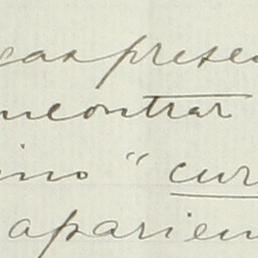 cas prese
ncontrar
ino " cur
aparien